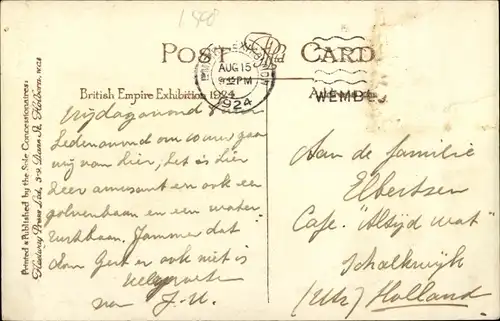 1880
POST CARD
BRITISH EMPIRE EXHIBITION
AUG 15
9:15 PM
1924
WEMBL
British Empire Exhibition 1924
Printed & Published by the Sole Concessionaires:
Fleetway Press Ltd, 3-9 Dane St, Holborn, WC1
Vrijdagavond
om 10 uur gaan
wij van hier, het is hier
zeer amusant en ook een
golvenbaan en een water
rutschbaan. Jammer dat
dan Gert er ook niet is
veel groeten
van J.U.
Aan de familie
Elbertsen
Café "Altijd wat"
Schalkwijk
(Utr) Holland